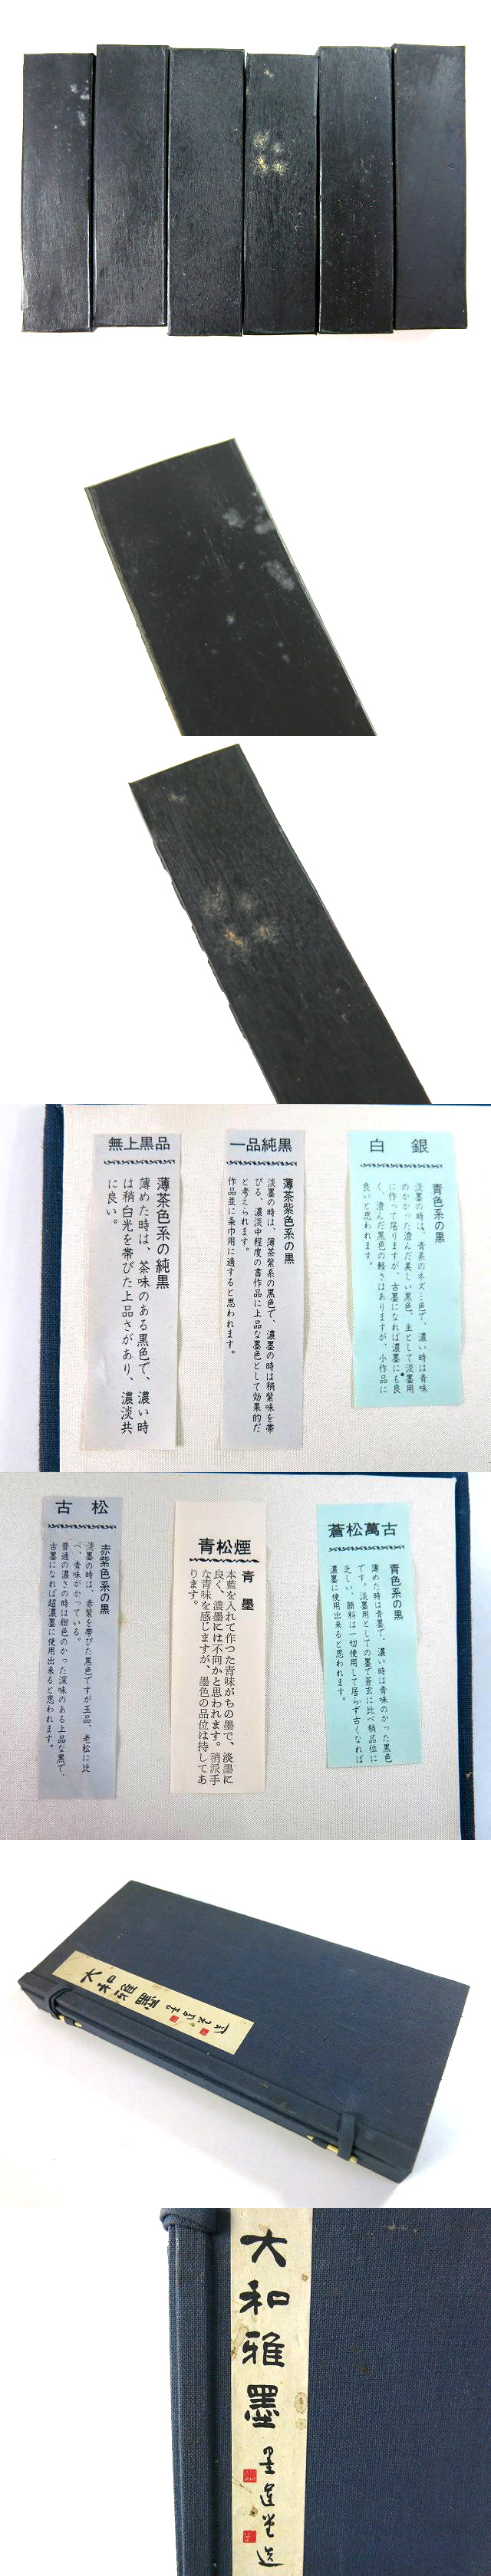 無上黒品
薄茶色系の純黒
薄めた時は、茶味のある黒色で、濃い時
は稍白光を帯びた上品さがあり、濃淡共
に良い。
一品純黒
薄茶紫色系の黒
淡墨の時は、薄茶紫系の黒色で、濃墨の時は稍紫味を帯
びる、濃淡中程度の書作品に上品な墨色として効果的だ
と考えられます。
作品並に条巾用に適すると思われます。
白銀
青色系の黒
淡墨の時は、青系のネズミ色で、濃い時は青味
のかかった澄んだ美しい黒色、主として淡墨用
に作って居りますが、古墨になれば濃墨にも良
く、澄んだ黒色の軽さはありますが、小作品に
良いと思われます。
古松
赤紫色系の黒
淡墨の時は、赤紫を帯びた黒色ですが玉品、老松に比
べ、青味がかっている。
普通の濃さの時は紺色のかった深味のある上品な黒で、
古墨になれば超濃墨に使用出来ると思われます。
青松煙
青墨
本藍を入れて作つた青味がちの墨で、淡墨に
良く、濃墨には不向かと思われます。稍派手
な青味を感じますが、墨色の品位は持してあ
ります。
蒼松萬古
青色系の黒
薄めた時は青墨で、濃い時は青味のかった黒色
です。淡墨用としての墨で蒼玄に比べ稍品位に
乏しい、顔料は一切使用して居らず古くなれば
濃墨に使用出来ると思われます。
大和雅墨
大和雅墨
墨運堂造